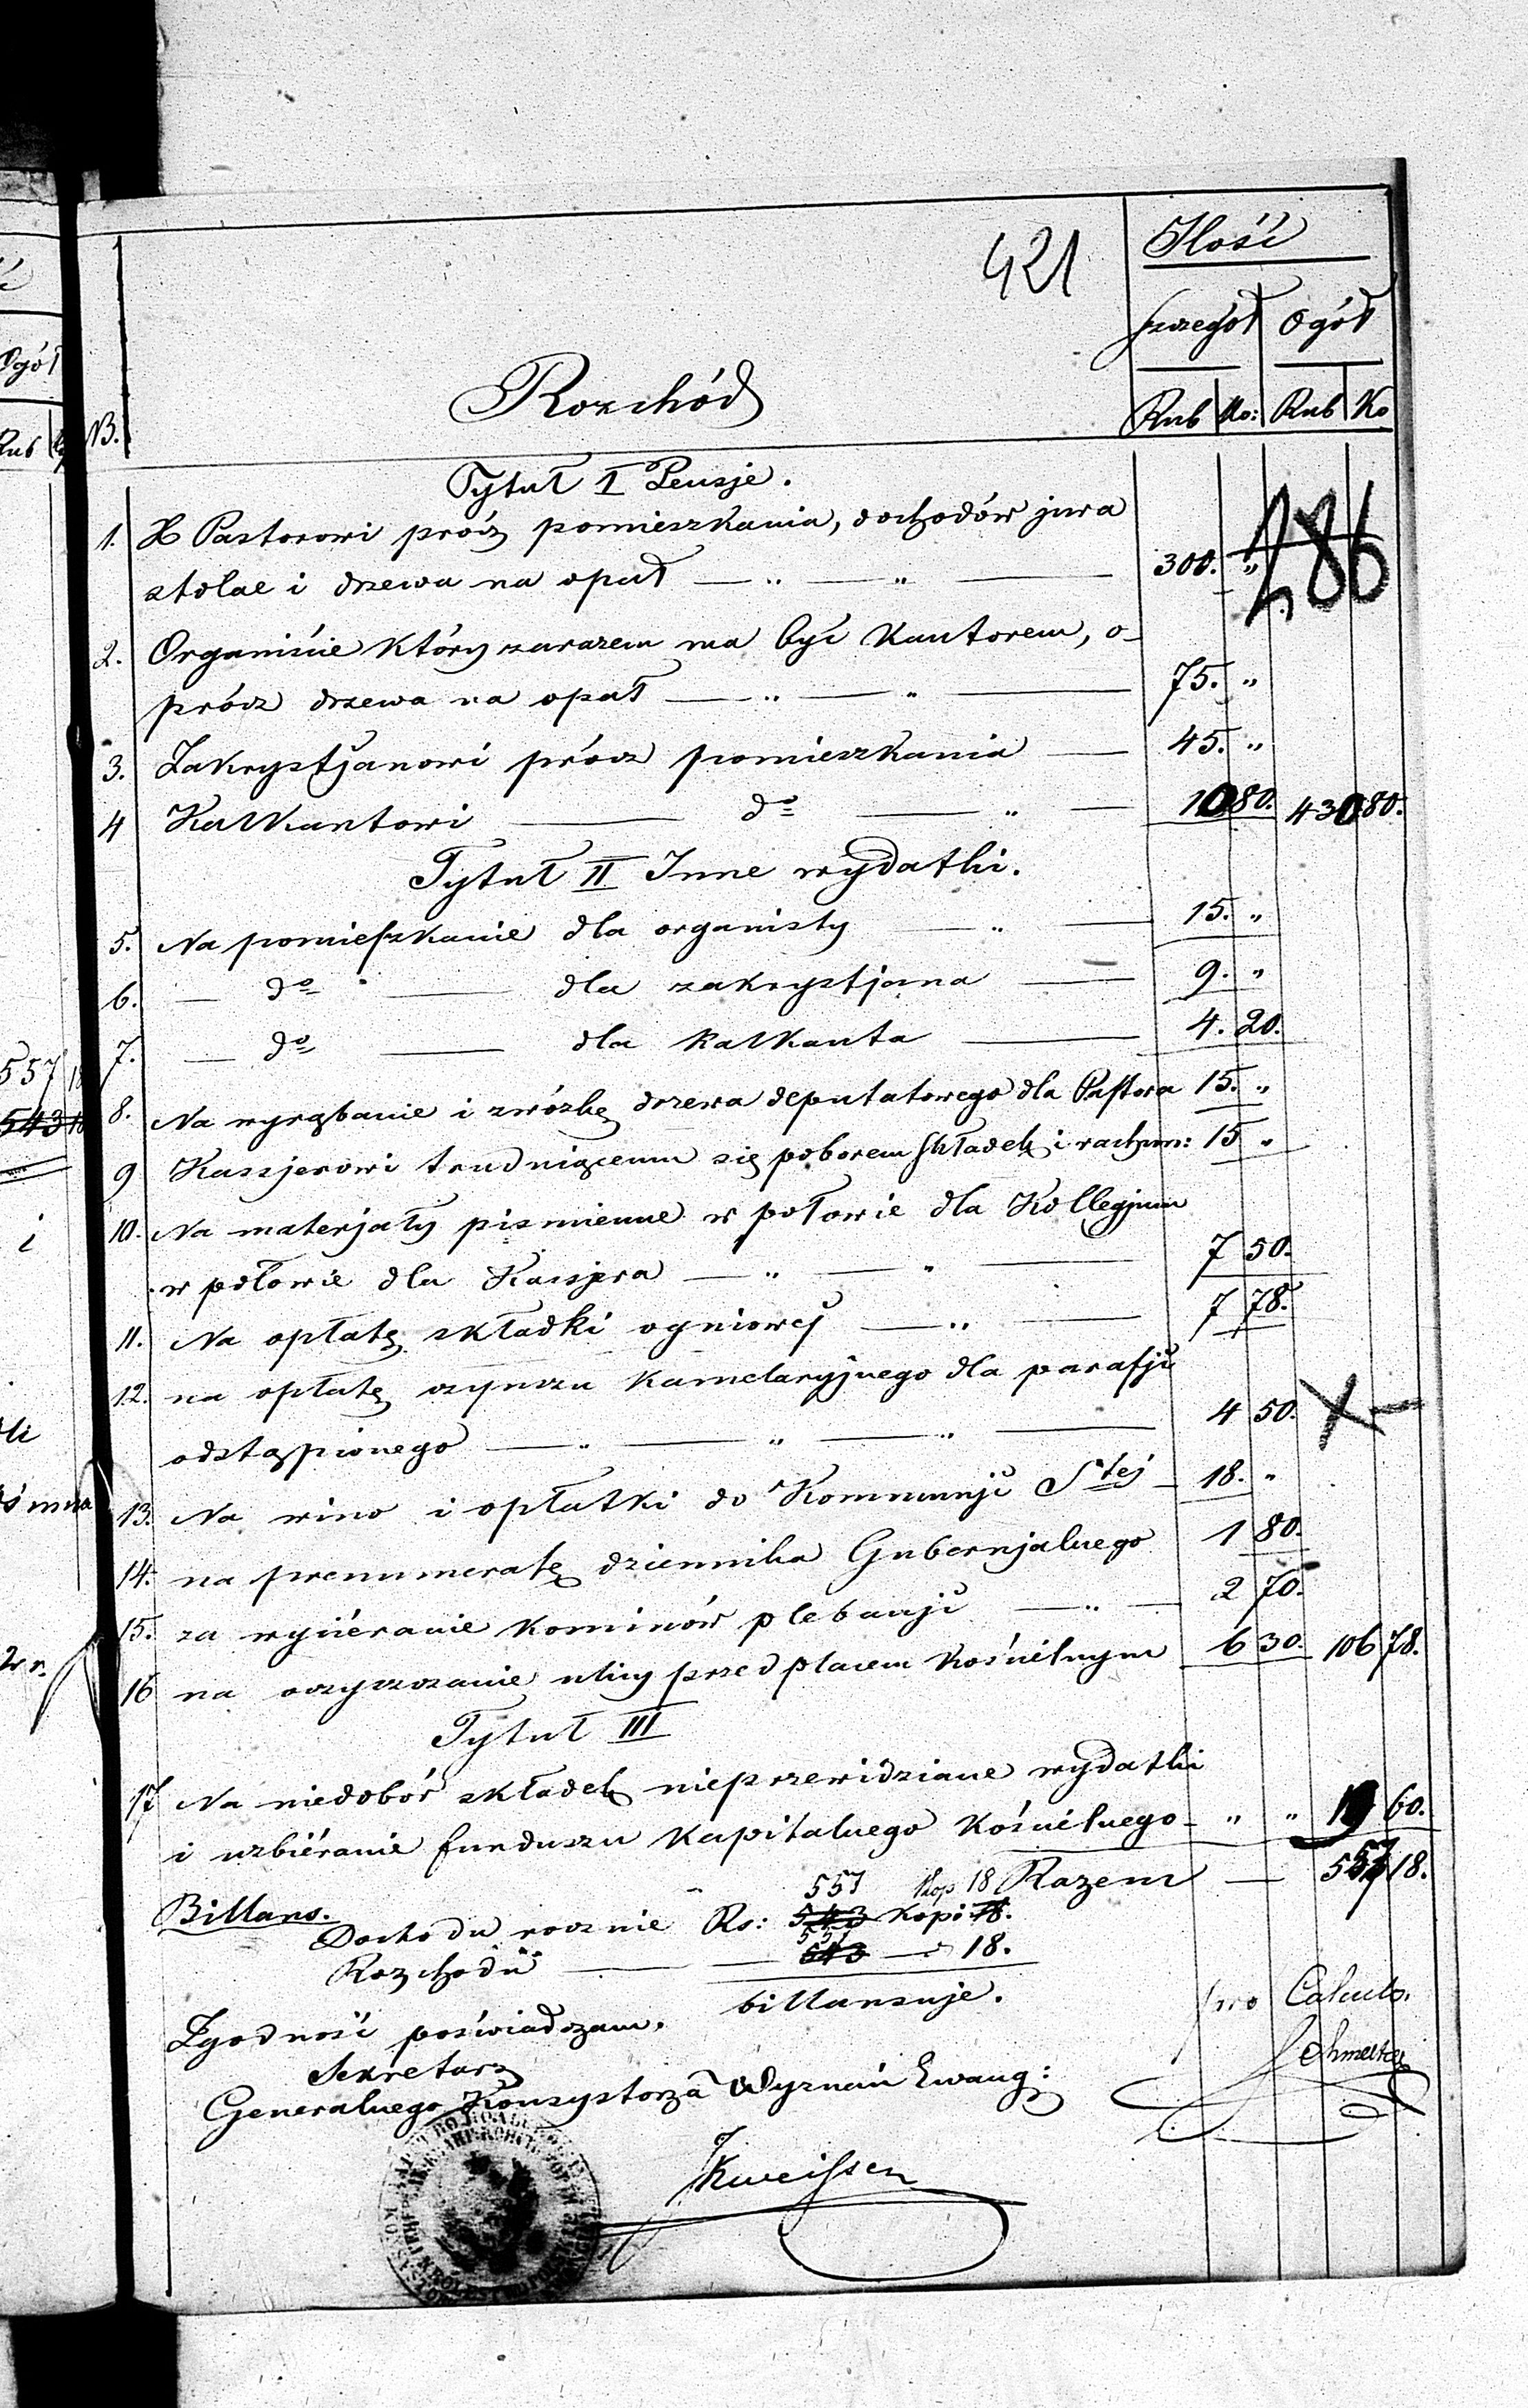 421
Ilość
szczegół Ogół
N. Rozchód Rub Ko: Rub Ko
Tytuł I Pensje.
1. X Pastorowi prócz pomieszkania, dochodów jura
stolae i drzewa na opał — „ — „ — 300. „
486
2. Organiście który zarazem ma być Kantorem, o-
prócz drzewa na opał — „ — „ — 75. „
3. Zakrystjanowi prócz pomieszkania — 45. „
4 Kalkantowi — do — „ — 10 80. 430 80.
Tytuł II Inne wydatki.
5. Na pomieszkanie dla organisty — „ — 15. „
6. — do — dla zakrystjana — 9. „
7. — do — dla Kalkanta — 4. 20.
8. Na wyrąbanie i zwózkę drzewa deputatowego dla Pastora 15. „
9 Kassjerowi trudniącemu się poborem składek i rachun: 15 „
10. Na materjały piśmienne w połowie dla Kollegjum
w połowie dla Kassjera — „ — „ — 7 50.
11. Na opłatę składki ogniowej — „ — 7 78.
12. na opłatę czynszu Kamelaryjnego dla parafji
odstąpionego — „ — „ — „ — 4 50. X —
13. Na wino i opłatki do Kommunji Stej — 18. „
14. na prenumeratę dziennika Gubernjalnego 1 80.
15. za wyciéranie Kominów plebanji — „ — 2 70.
16 na oczyszczanie ulicy przed placem Kościélnym 6 30. 106 78.
Tytuł III
17 Na niedobór składek nieprzewidziane wydatki
i uzbiéranie funduszu Kapitalnego Kościelnego — „ „ 19 60.
Razem — 557 18.
Billans. 557 kop 18
Dochodu rocznie Rs: 543 Kopi 18.
557
Rozchodu — 543 — 18.
billansuje.
Zgodność poświadczam.
pro Calculo.
Sekretarz
Generalnego Konsystorza Wyznań Ewang: